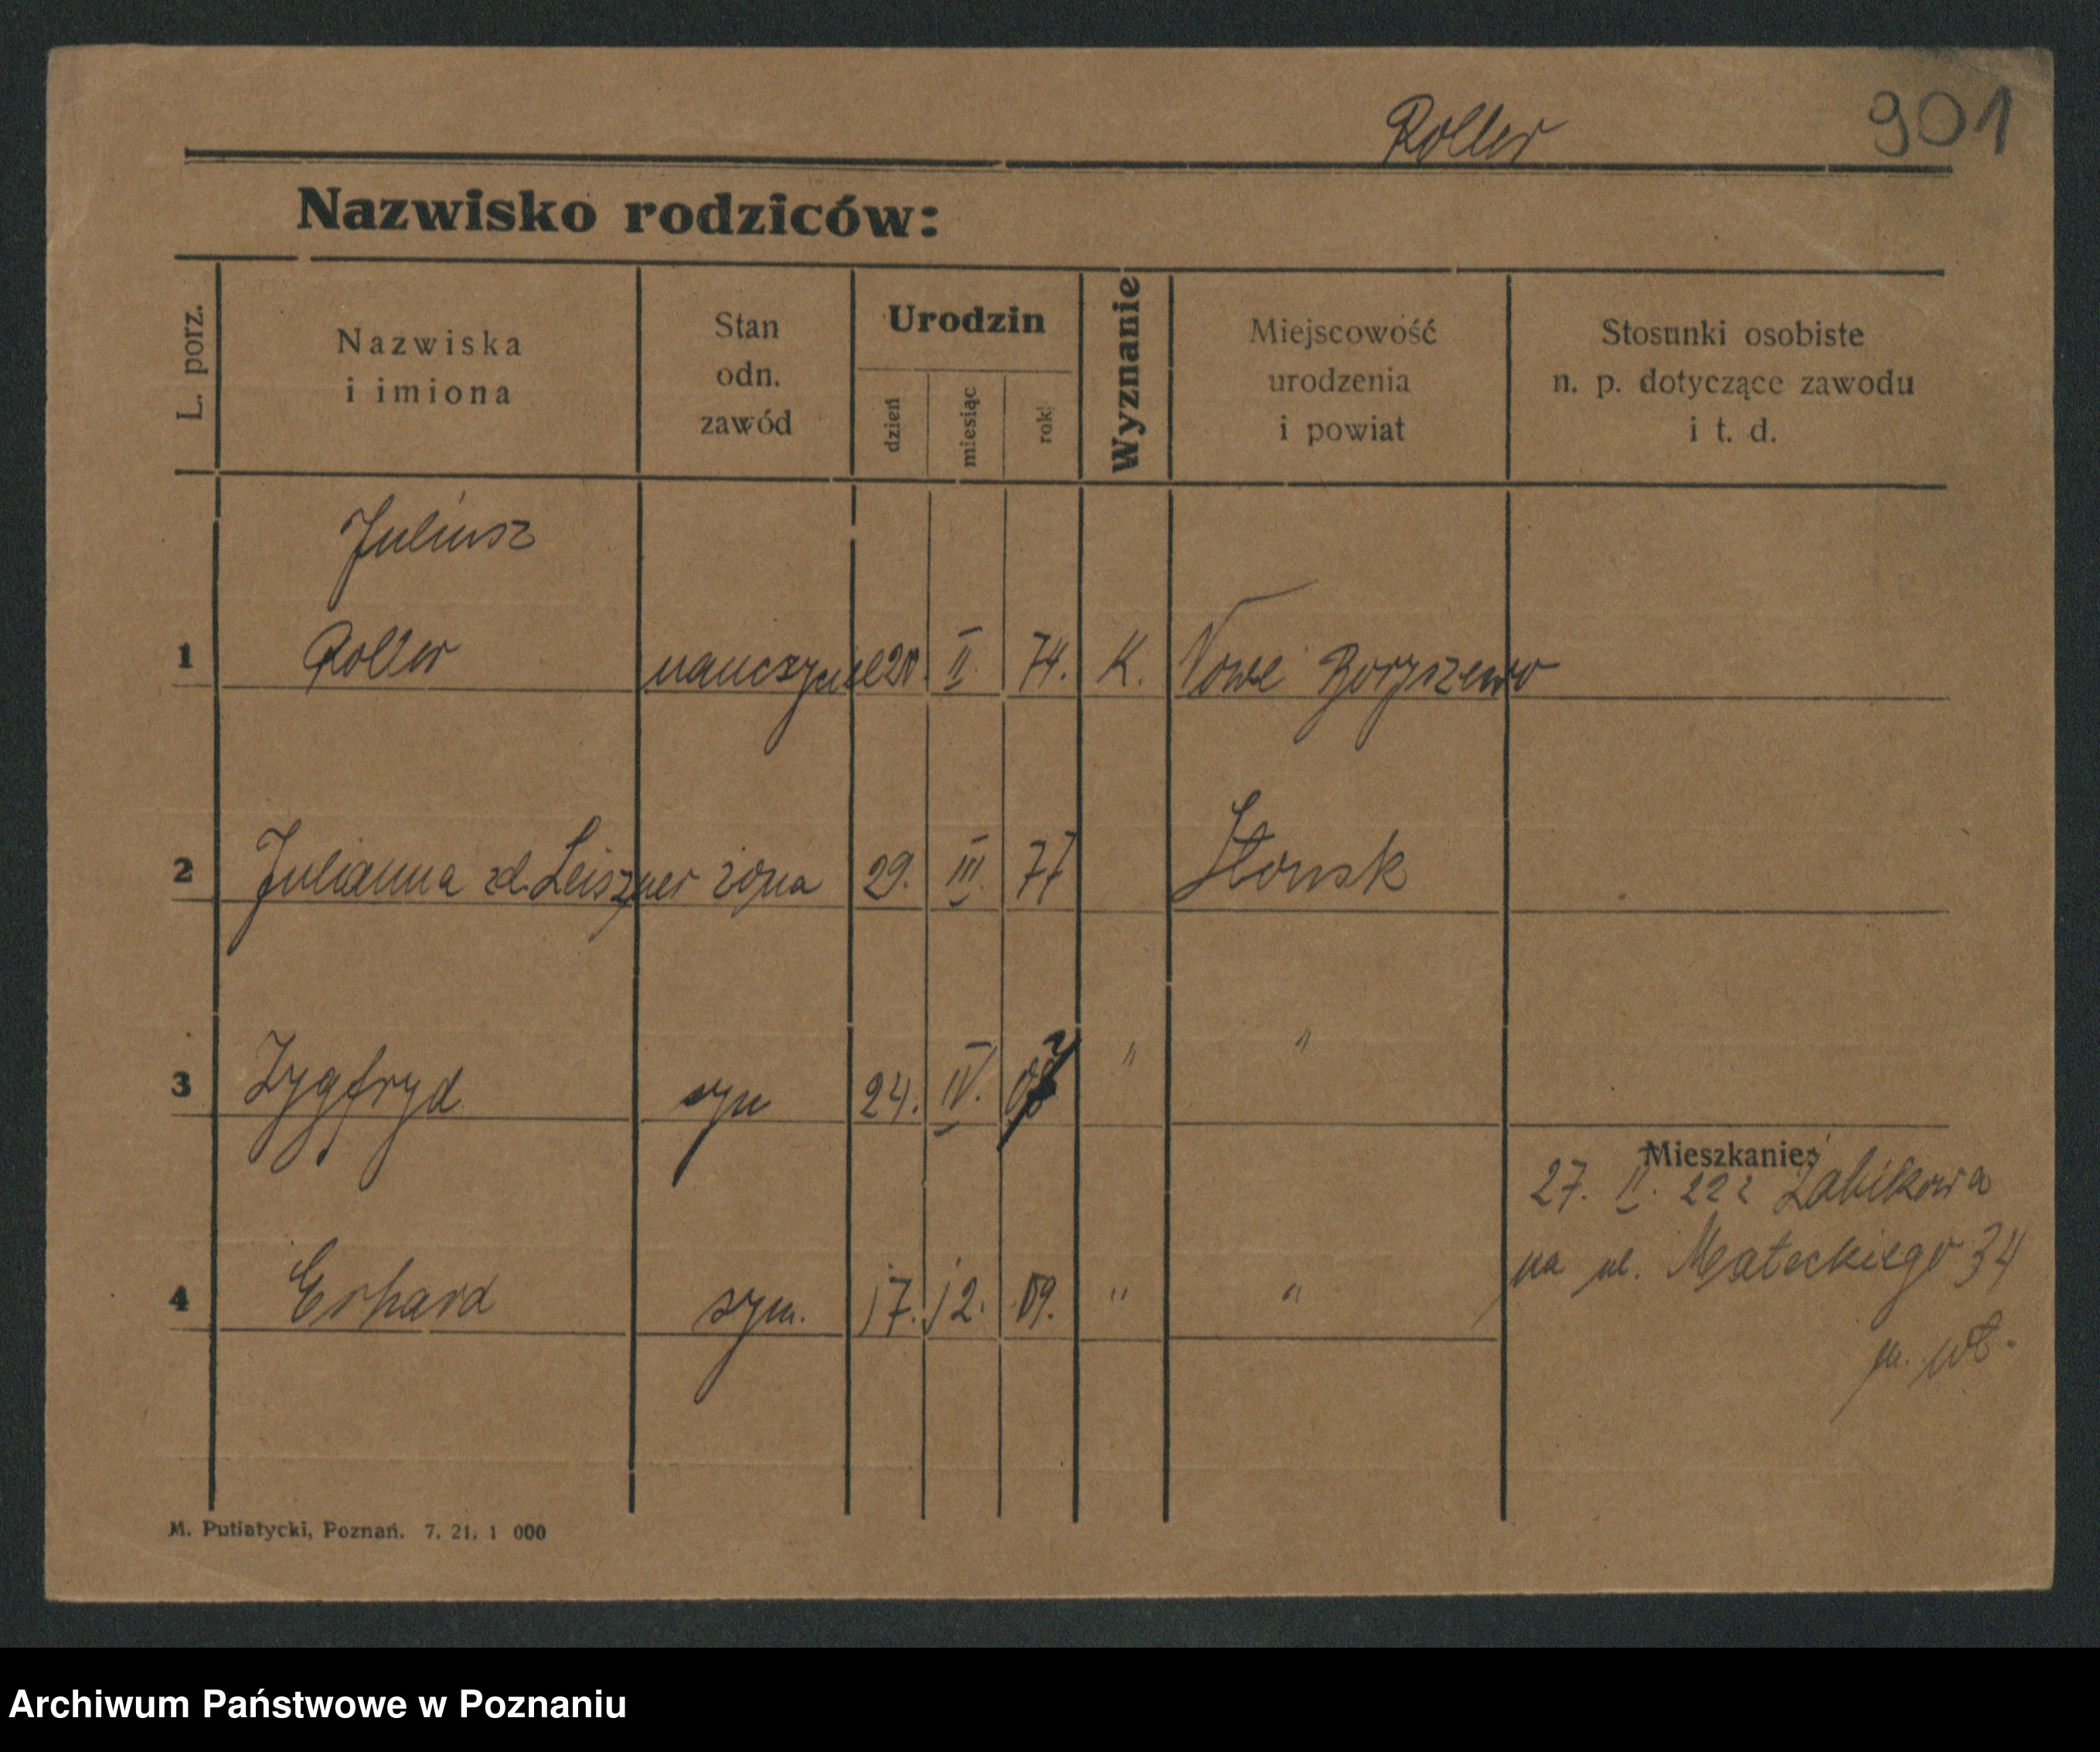 Roller 901
Nazwisko rodziców:
L. porz.
Nazwiska
i imiona
Stan
odn.
zawód
Urodzin
dzień
miesiąc
rok
Wyznanie
Miejscowość
urodzenia
i powiat
Stosunki osobiste
n. p. dotyczące zawodu
i t. d.
Juliusz
1 Roller nauczyciel 20. II. 74. K. Nowe Boryszewo
2 Julianna zd. Leiszner żona 29. III. 77 Słonsk
3 Zygfryd syn 24. IV. " "
Mieszkanie:
27. II. 222 Żabikowa
4 Erhard syn. 17. 12. 09. " "
na ul. Małeckiego 34
M. Putiatycki, Poznań. 7. 21. 1 000
Archiwum Państwowe w Poznaniu